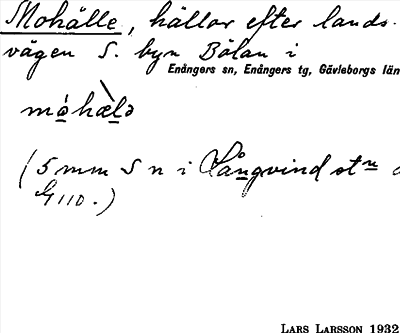 Mohälle, hällar efter lands-
vägen S. byn Bölan i
Enångers sn, Enångers tg, Gävleborgs län
(5 mm S n i Långvind stn
G 110.)
LARS LARSSON 1932